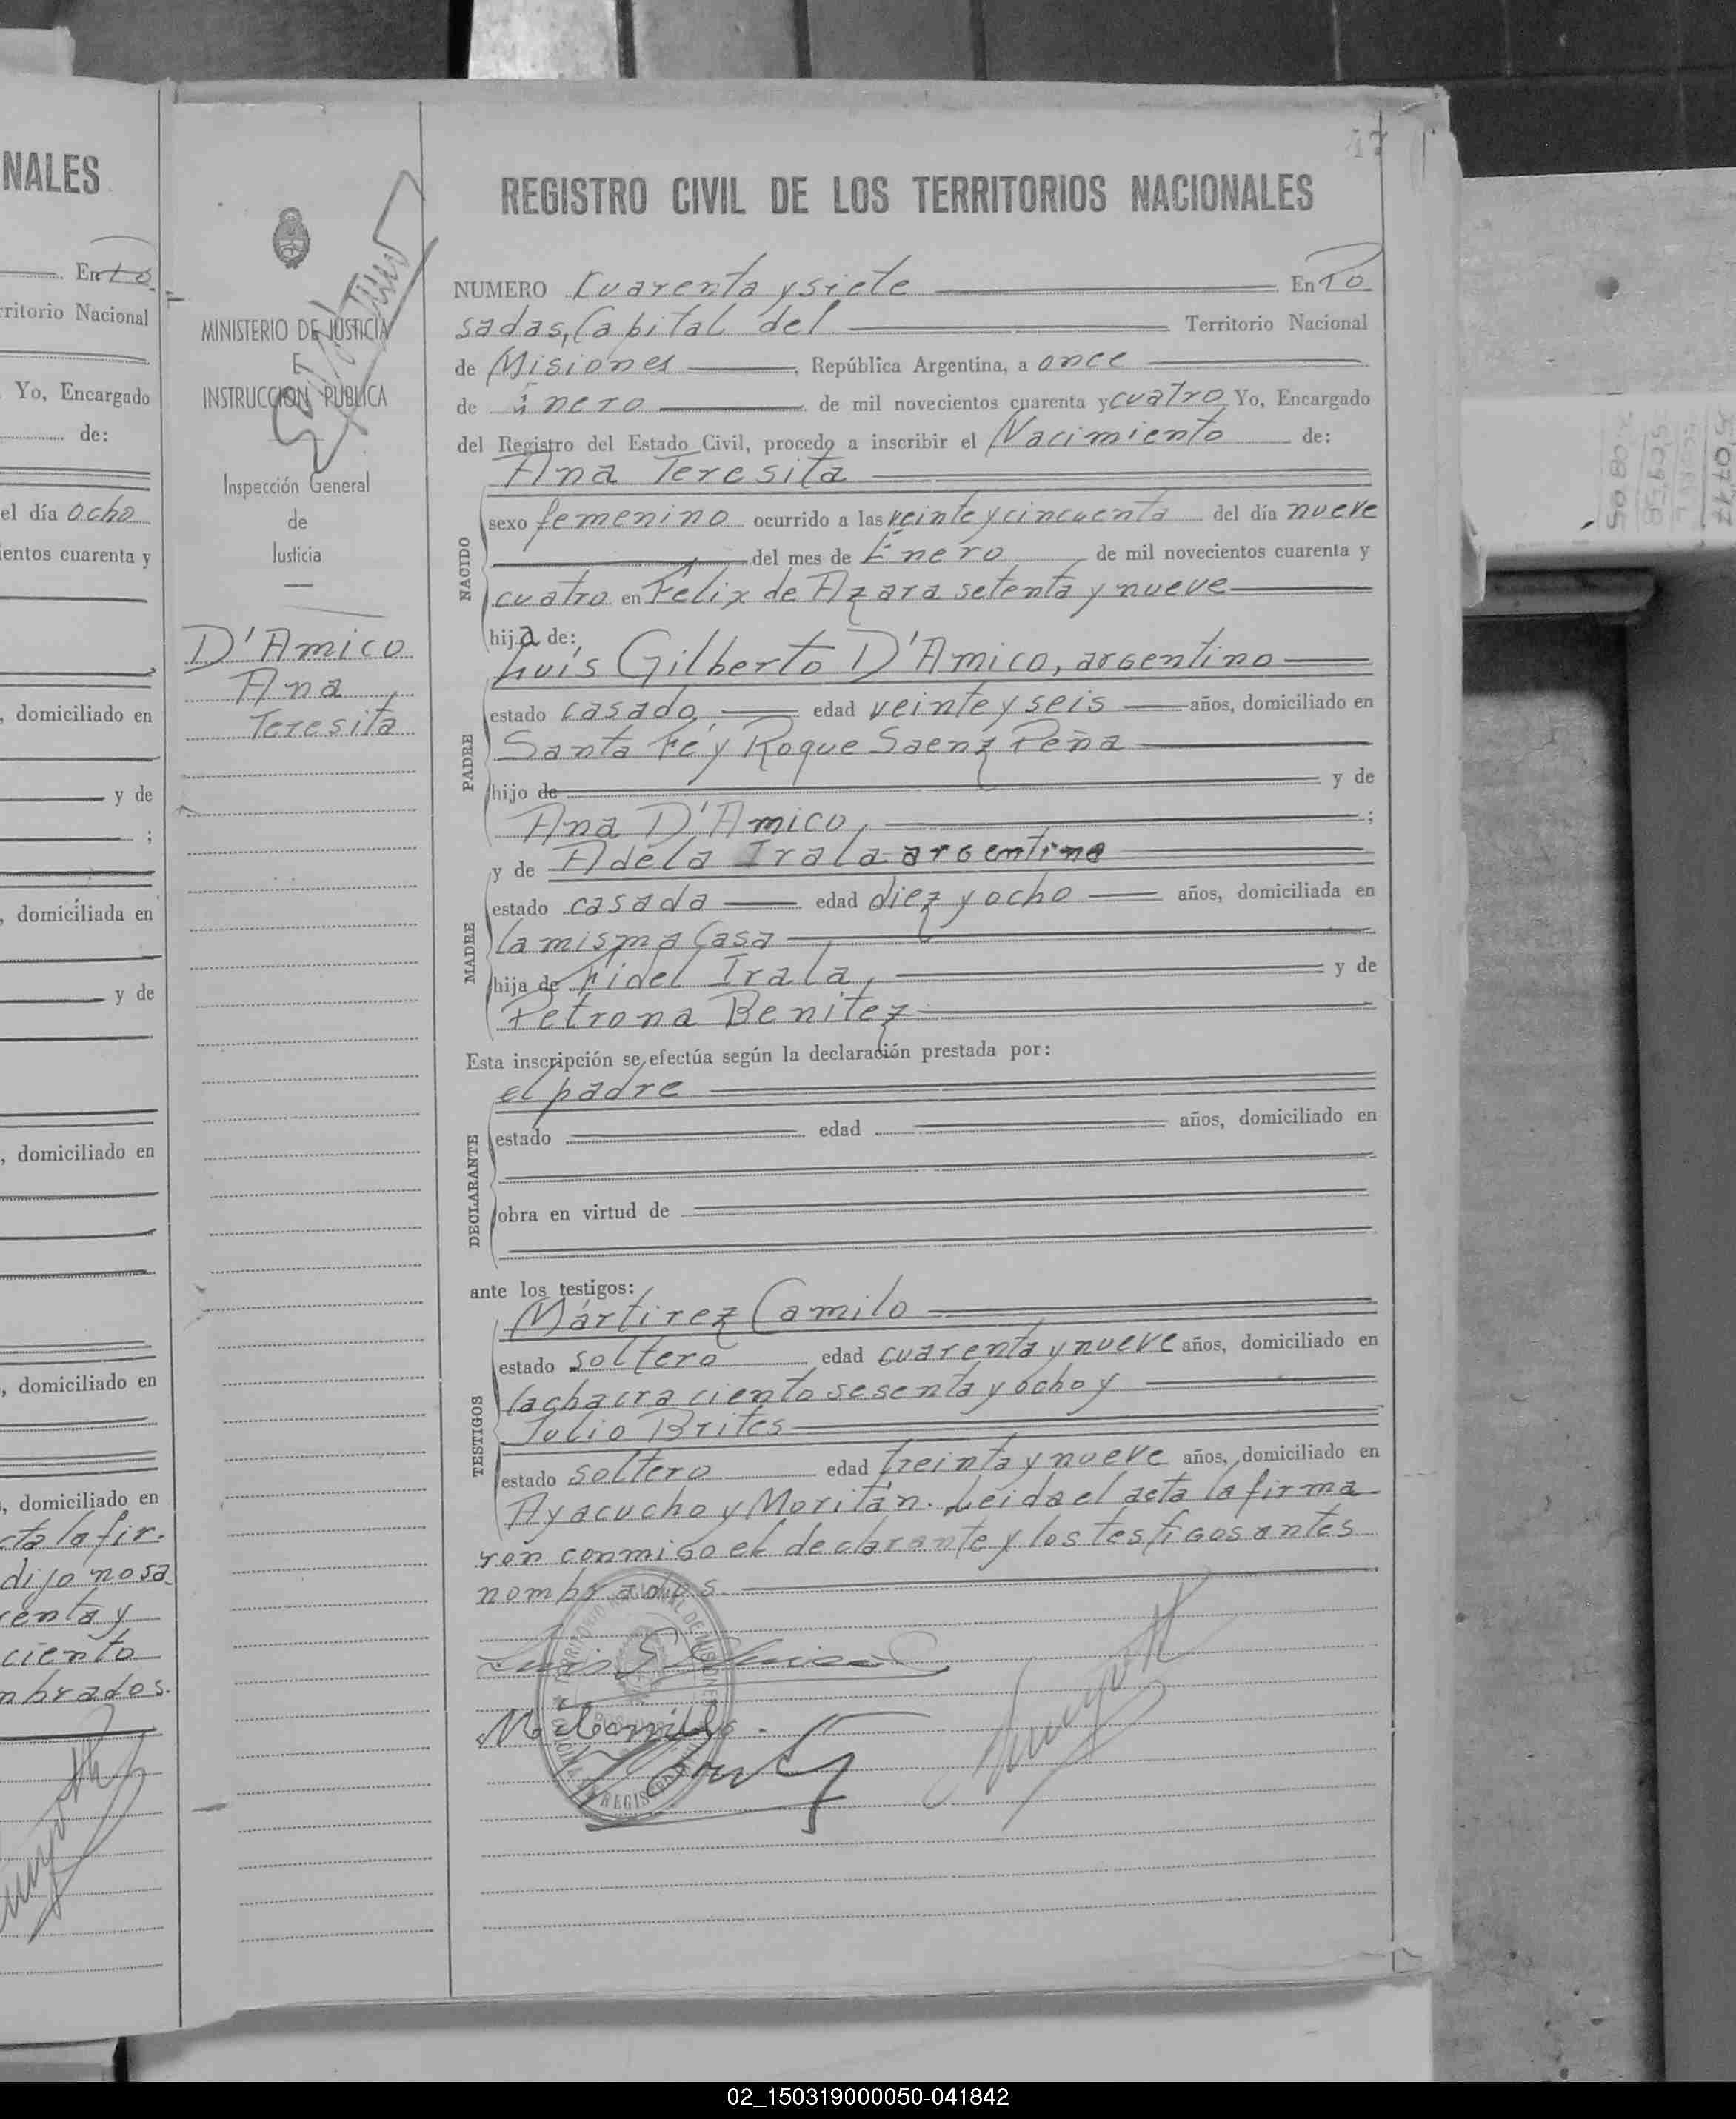 NALES
En Po
rritorio Nacional
Yo, Encargado
de:
el día ocho
ientos cuarenta y
, domiciliado en
y de
;
, domiciliada en
y de
, domiciliado en
, domiciliado en
, domiciliado en
cta la fir-
dijo no sa
renta y
ciento
mbrados.
MINISTERIO DE JUSTICIA
E
INSTRUCCION PUBLICA
Inspección General
de
Justicia
D'Amico
Ana
Teresita
47
REGISTRO CIVIL DE LOS TERRITORIOS NACIONALES
NUMERO Cuarenta y siete En Po
sadas, Capital del Territorio Nacional
de Misiones, República Argentina, a once
de Enero de mil novecientos cuarenta y cuatro Yo, Encargado
del Registro del Estado Civil, procedo a inscribir el Nacimiento de:
Ana Teresita
NACIDO
sexo femenino ocurrido a las veinte y cincuenta del día nueve
del mes de Enero de mil novecientos cuarenta y
cuatro en Felix de Azara setenta y nueve
hija de:
Luis Gilberto D'Amico, argentino
PADRE
estado casado, edad veinte y seis años, domiciliado en
Santa Fé y Roque Saenz Peña
hijo de y de
Ana D'Amico, ;
y de Adela Irala argentina
MADRE
estado casada edad diez y ocho años, domiciliada en
la misma Casa
hija de Fidel Irala, y de
Petrona Benitez
Esta inscripción se efectúa según la declaración prestada por:
el padre
DECLARANTE
estado edad años, domiciliado en
obra en virtud de
ante los testigos:
Mártirez Camilo
TESTIGOS
estado soltero edad cuarenta y nueve años, domiciliado en
la chacra ciento sesenta y ocho y
Julio Brites
estado soltero edad treinta y nueve años, domiciliado en
Ayacucho y Moritán. Leida el acta la firma
ron conmigo el declarante y los testigos antes
nombrados.
02_150319000050-041842